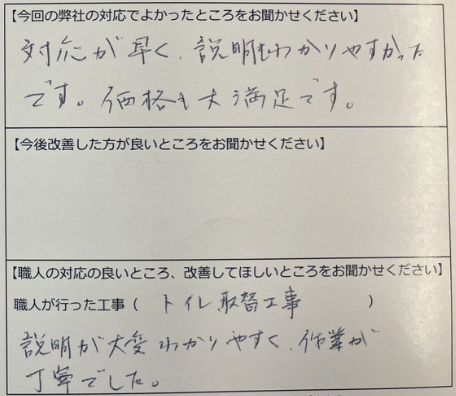 【今回の弊社の対応でよかったところをお聞かせください】
対応が早く、説明もわかりやすかった
です。価格も大満足です。
【今後改善した方が良いところをお聞かせください】
【職人の対応の良いところ、改善してほしいところをお聞かせください】
職人が行った工事（ トイレ取替工事 ）
説明が大変わかりやすく、作業が
丁寧でした。